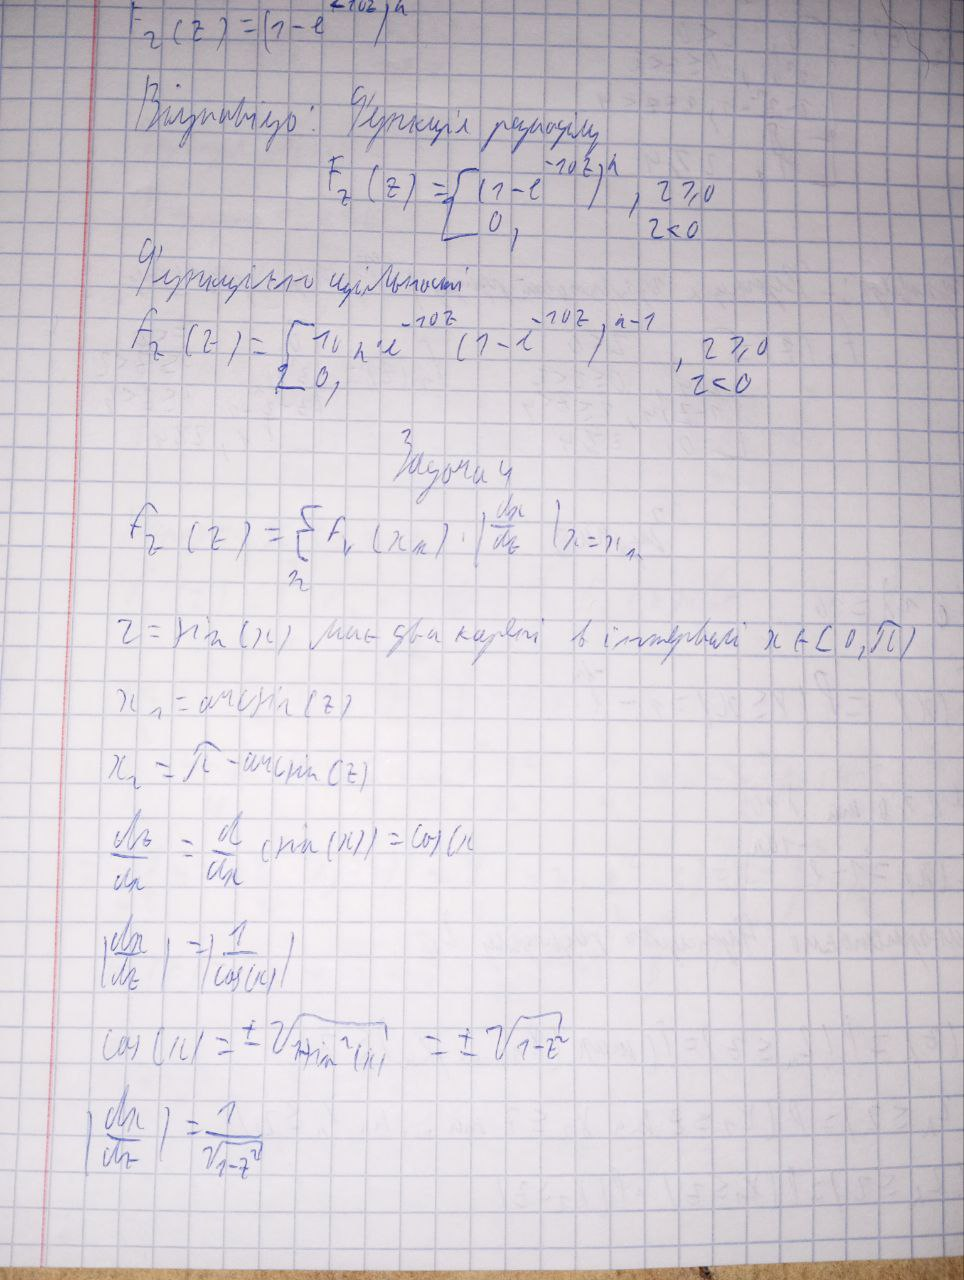 F_z(z) = (1-e^{-10z})^n
Відповідь: Функція розподілу
F_z(z) = { (1-e^{-10z})^n, z ≥ 0
0, z < 0
Функцією щільності
f_z(z) = { 10 n·e^{-10z} (1-e^{-10z})^{n-1}, z ≥ 0
0, z < 0
Задача 4
f_z(z) = Σ_n f_x(x_n) · |dx/dz|_{x=x_n}
z = sin(x) має два корені в інтервалі x ∈ (0, π)
x_1 = arcsin(z)
x_2 = π - arcsin(z)
dz/dx = d/dx (sin(x)) = cos(x
|dx/dz| = |1/cos(x)|
cos(x) = ± √(1-sin²(x)) = ± √(1-z²)
|dx/dz| = 1/√(1-z²)